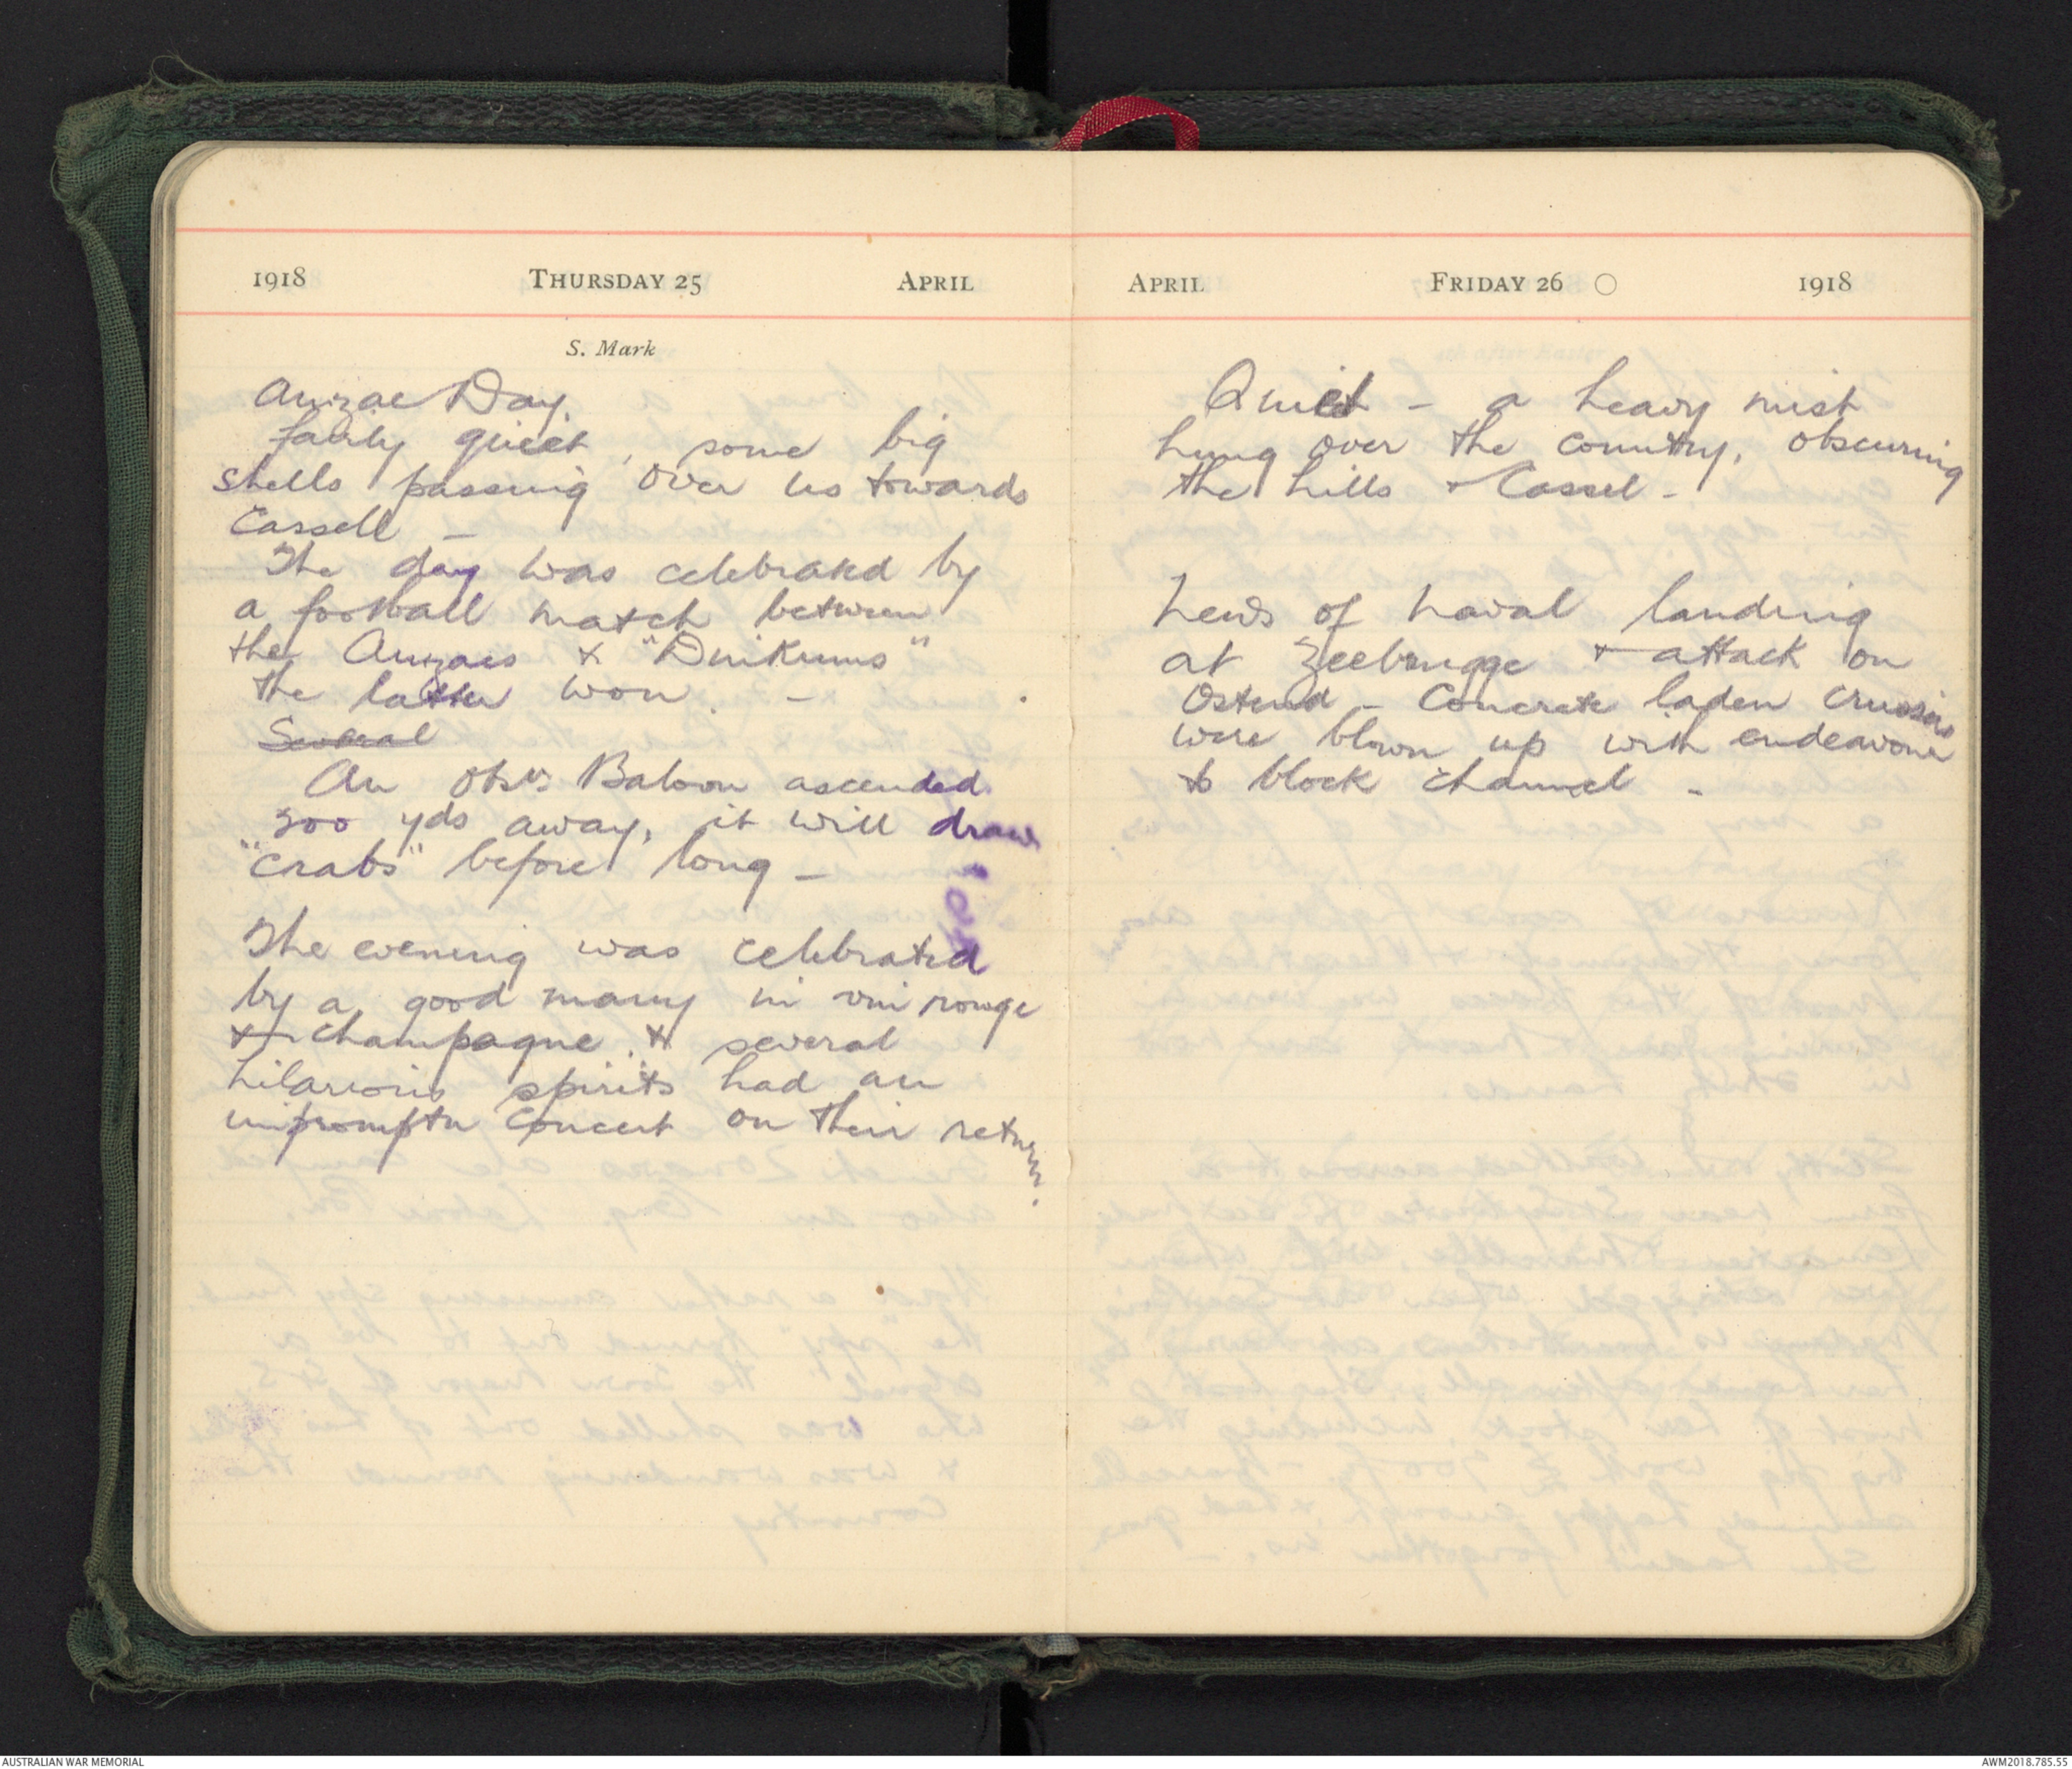 1918 THURSDAY 25 APRIL
S. Mark
Anzac Day.
fairly quiet, some big
shells passing over us towards
Cassell –
The day was celebrated by
a football match between
the Anzacs & "Dinkums"
the latter won. –
Several
An Obsn Baloon ascended
300 yds away, it will draw
"crabs" before long –
The evening was celebrated
by a good many in vin rouge
& champagne & several
hilarious spirits had an
impromptu concert on their return.
APRIL FRIDAY 26 1918
Quiet – a heavy mist
hung over the country, obscuring
the hills & Cassel –
News of naval landing
at Zeebrugge & attack on
Ostend – Concrete laden cruisers
were blown up with endeavour
to block channel –
AUSTRALIAN WAR MEMORIAL
AWM2018.785.55